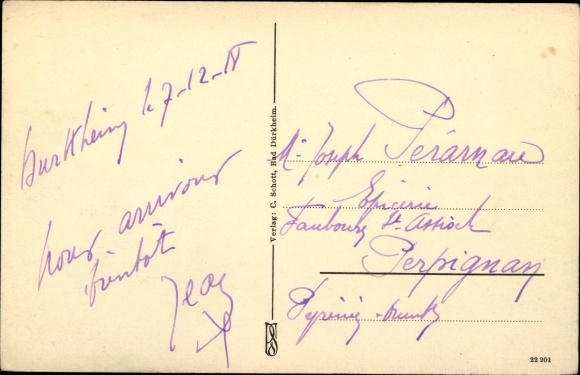 Durkheim le 7-12-18
nous arrivons
bientôt
Jean
Verlag: C. Schott, Bad Dürkheim.
Mr Joseph Pérarnau
Epicerie
Faubourg St Assiscle
Perpignan
Pyrénées-Orientles
22 201